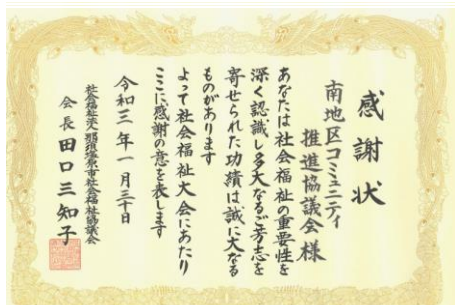 感謝状
南地区コミュニティ
推進協議会様
あなたは社会福祉の重要性を
深く認識し多大なるご芳志を
寄せられた功績は誠に大なる
ものがあります
よって社会福祉大会にあたり
ここに感謝の意を表します
令和三年一月三十日
社会福祉法人那須塩原市社会福祉協議会
会長田口三知子